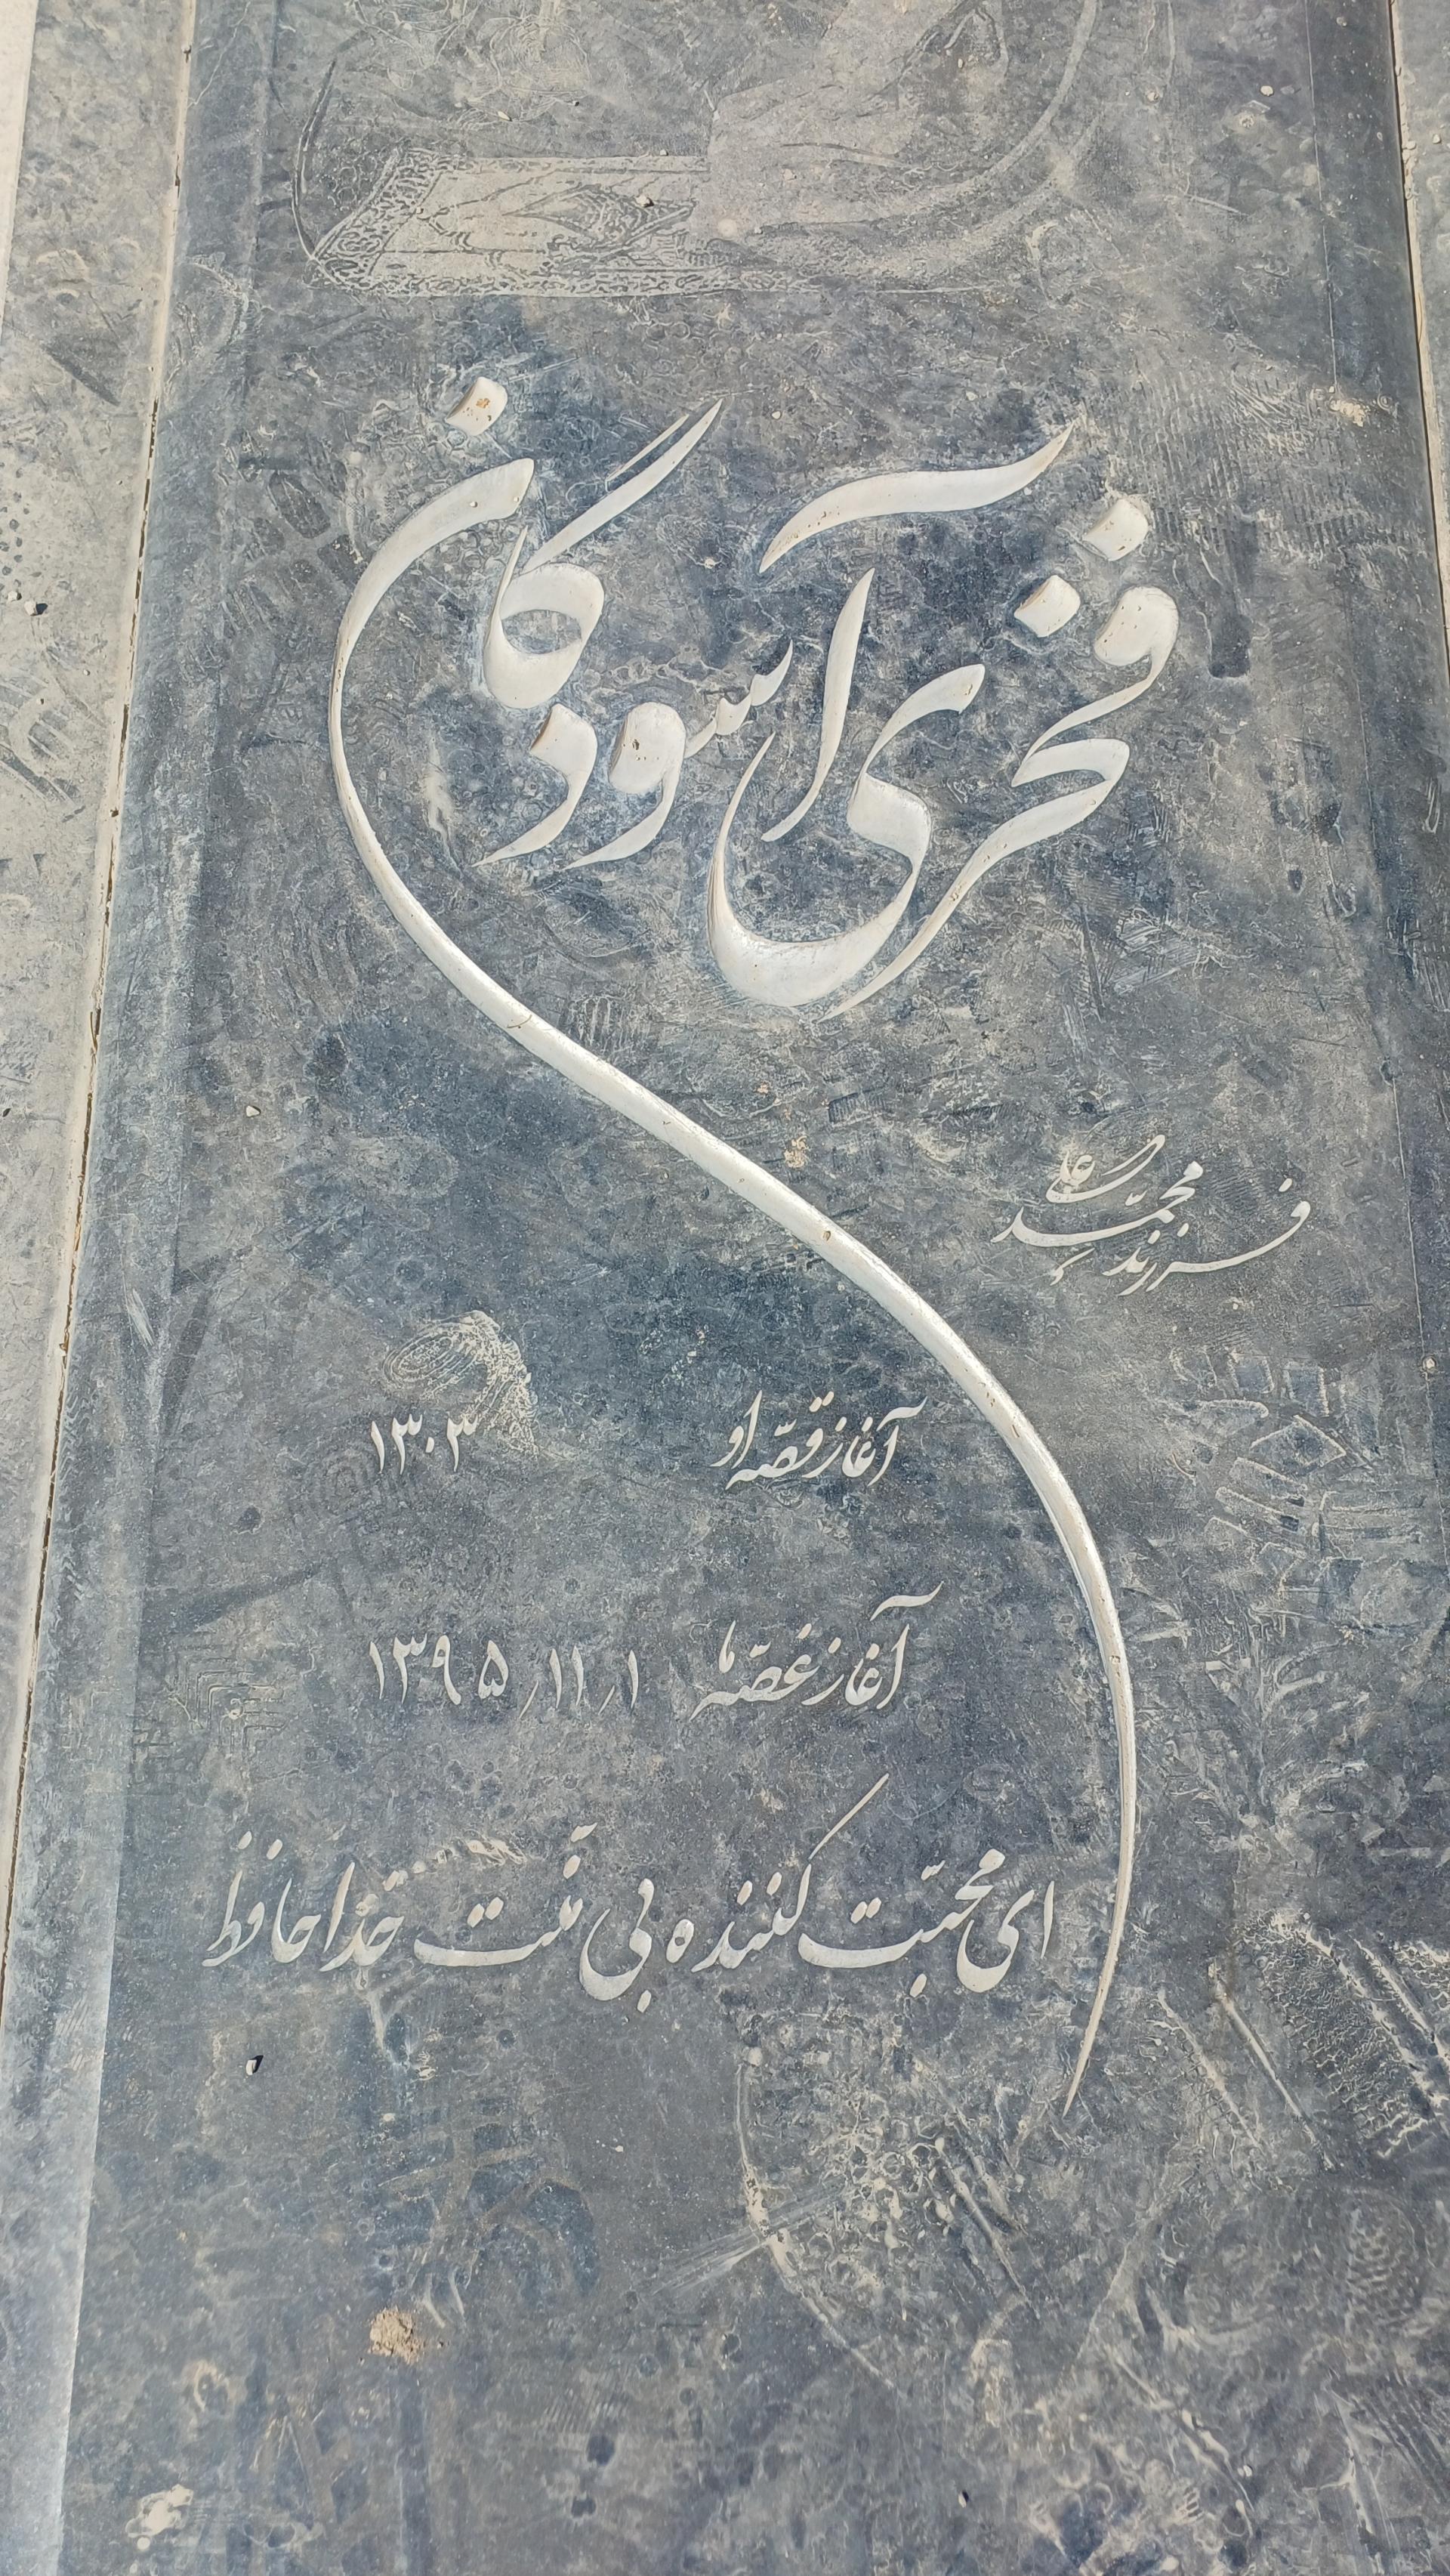 فخری آسودگان
فرزند محمدعلی
آغاز قصّه او ۱۳۰۳
آغاز غصّه ما ۱۳۹۵/۱۱/۱
ای محبّت کننده بی منّت خداحافظ